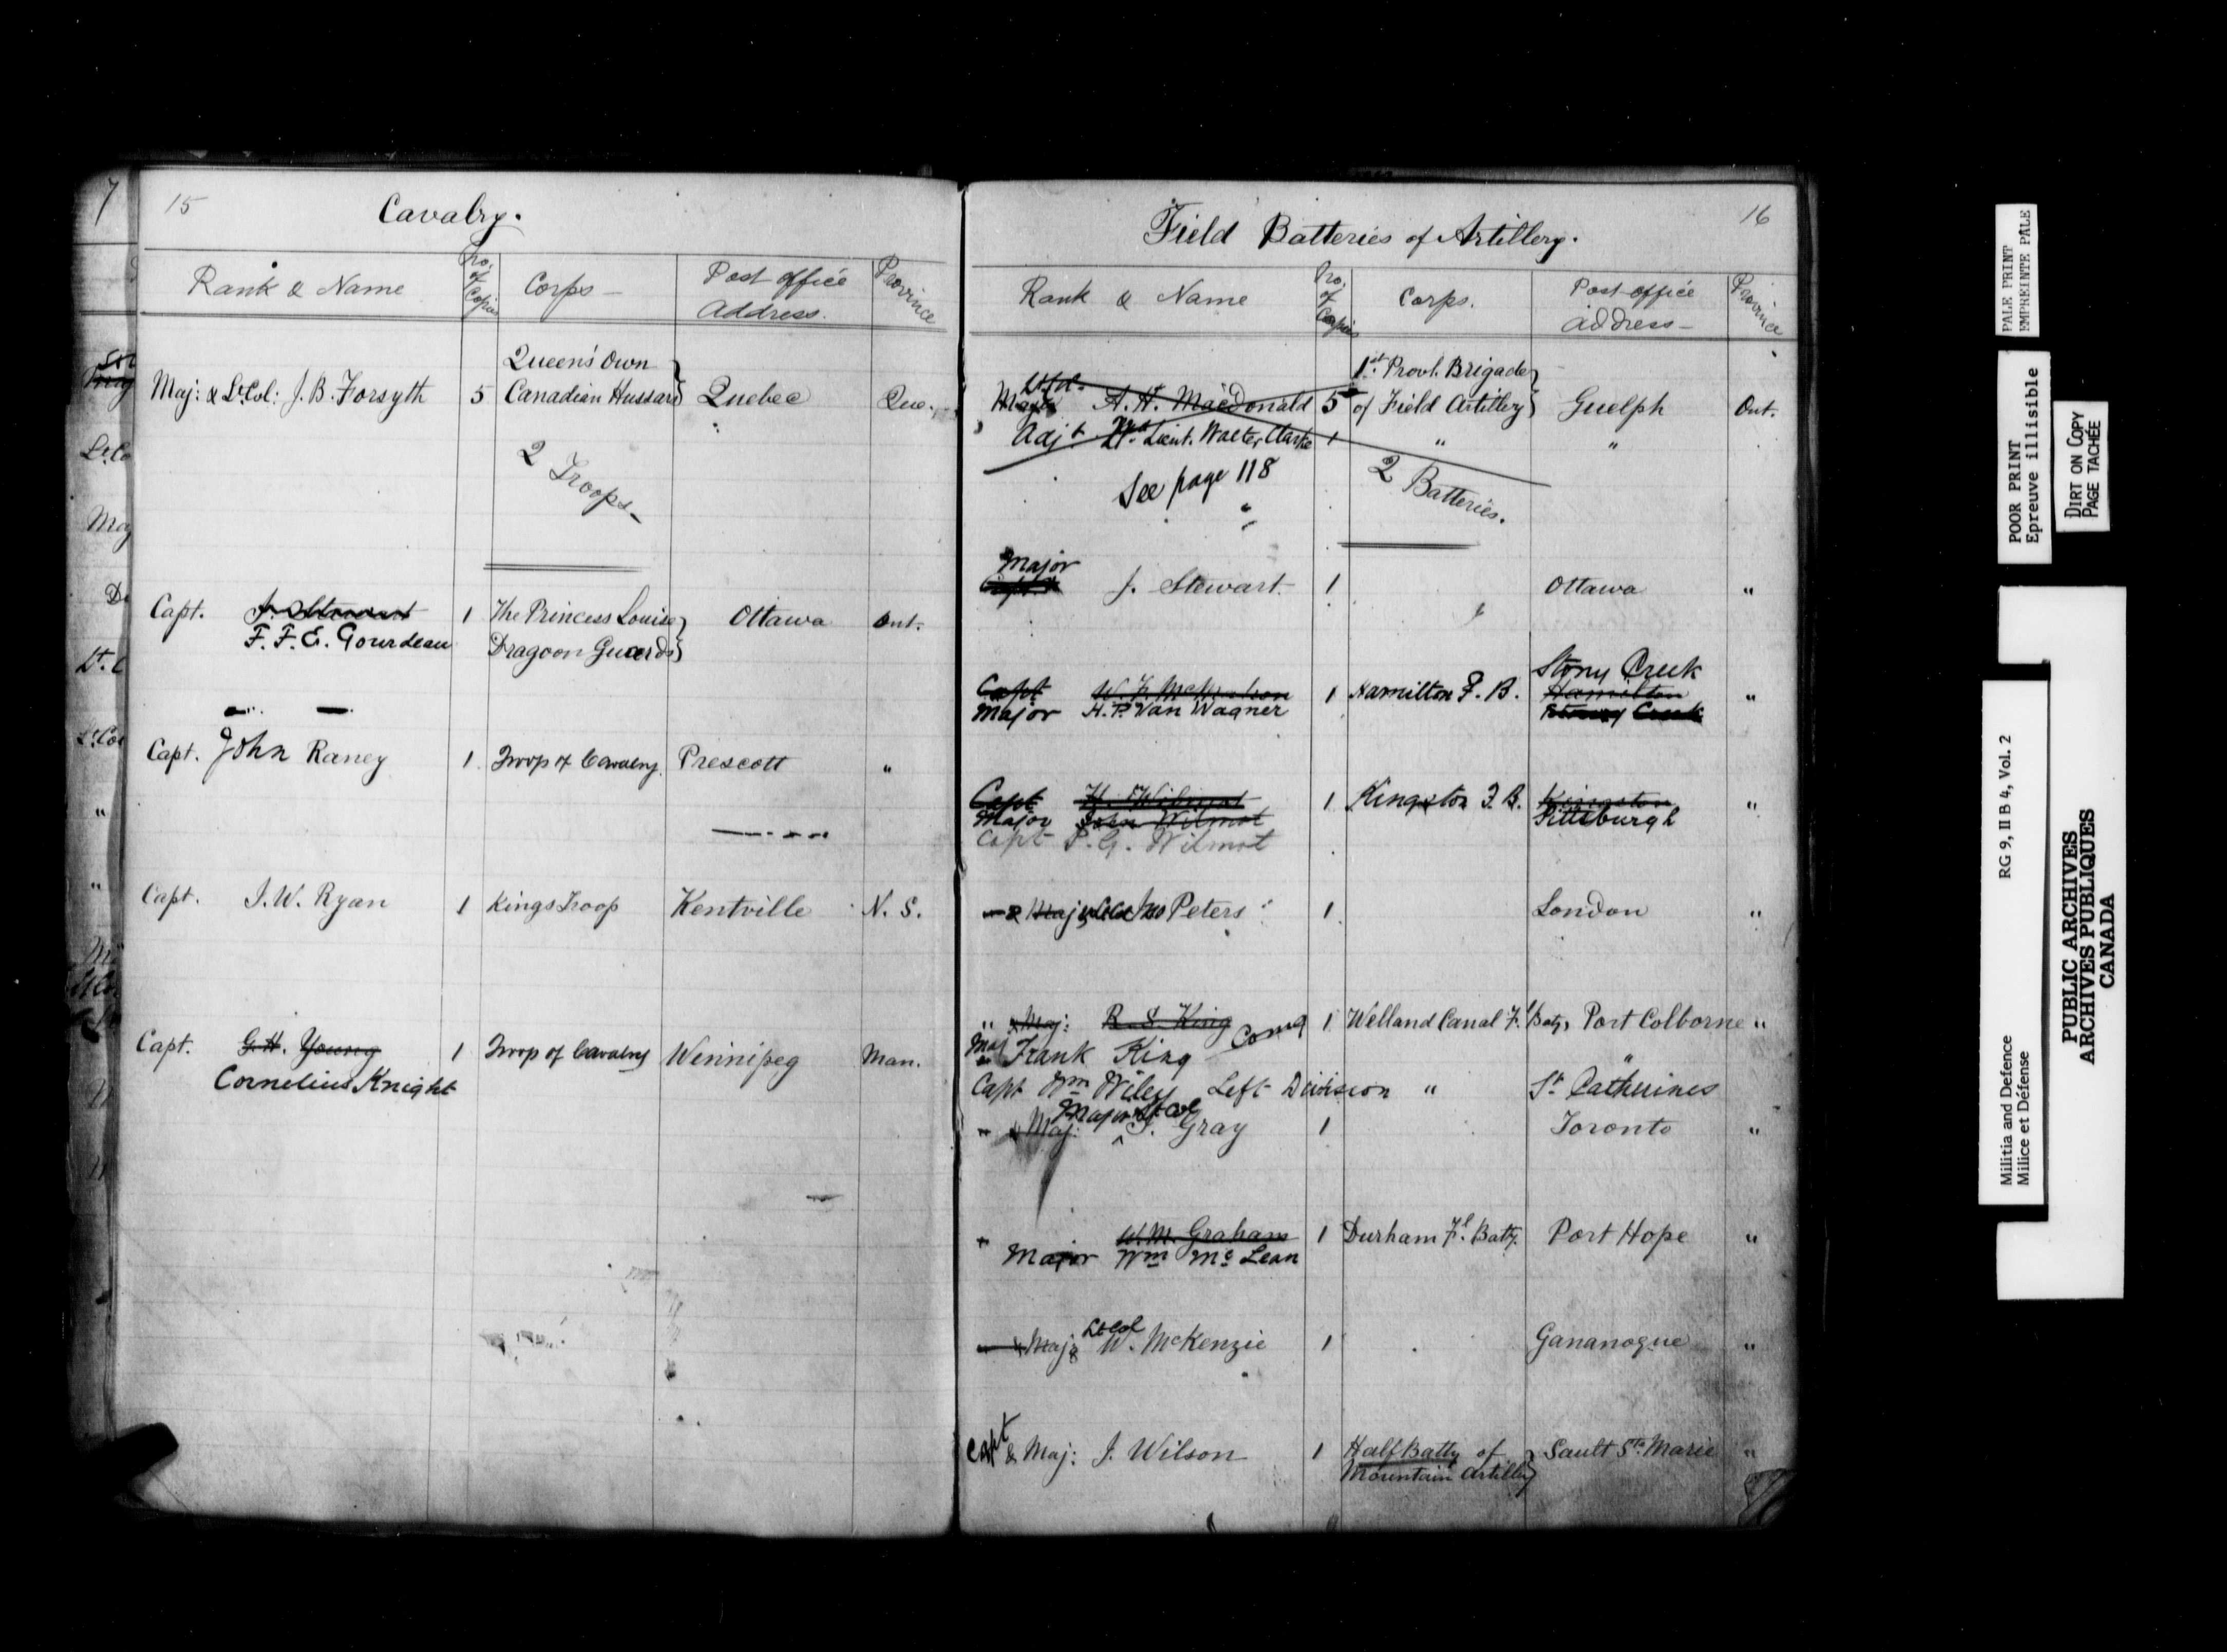 7
15
Cavalry.
Rank & Name
No. of Copies
Corps
Post office Address.
Province
Maj: & Lt. Col: J. B. Forsyth 5 Queen's Own Canadian Hussars Quebec Que.
2 Troops
Capt. J. Stewart 1 The Princess Louise Ottawa Ont.
F. F. E. Gourdeau Dragoon Guards
Capt. John Raney 1 Troop of Cavalry Prescott "
Capt. I. W. Ryan 1 Kings Troop Kentville N. S.
Capt. G. H. Young 1 Troop of Cavalry Winnipeg Man.
Cornelius Knight
16
Field Batteries of Artillery.
Rank & Name
No. of Copies
Corps.
Post office Address
Province
1st Provl. Brigade
Lt. Col. A. H. Macdonald 5 of Field Artillery Guelph Ont.
Adjt. Lieut. Walter Clarke 1 " "
See page 118
2 Batteries.
Major
J. Stewart 1 Ottawa "
Stony Creek
Capt 1 Hamilton F. B. Hamilton "
Major H. P. Van Wagner Stoney Creek
Capt H. Wilmot 1 Kingston F. B. Kingston "
Major John Wilmot Pittsburgh
Capt P. G. Wilmot
& Maj & Lt Col Jno Peters 1 London "
" & Maj: R. S. King 1 Welland Canal F. Baty, Port Colborne "
Maj Frank King Comg "
Capt Wm Wiley Left Division " St. Catherines
Major & Lt Col
" & Maj: J. Gray 1 Toronto "
" W. M. Graham 1 Durham Fd. Batty. Port Hope "
Major Wm Mc Lean
Lt Col
& Maj & W. McKenzie 1 Gananoque "
Capt & Maj: J. Wilson 1 Half Batty of Sault Ste Marie "
Mountain Artillery
PALE PRINT
EMPREINTE PALE
POOR PRINT
Epreuve illisible
DIRT ON COPY
PAGE TACHÉE
Militia and Defence RG 9, II B 4, Vol. 2
Milice et Défense
PUBLIC ARCHIVES
ARCHIVES PUBLIQUES
CANADA